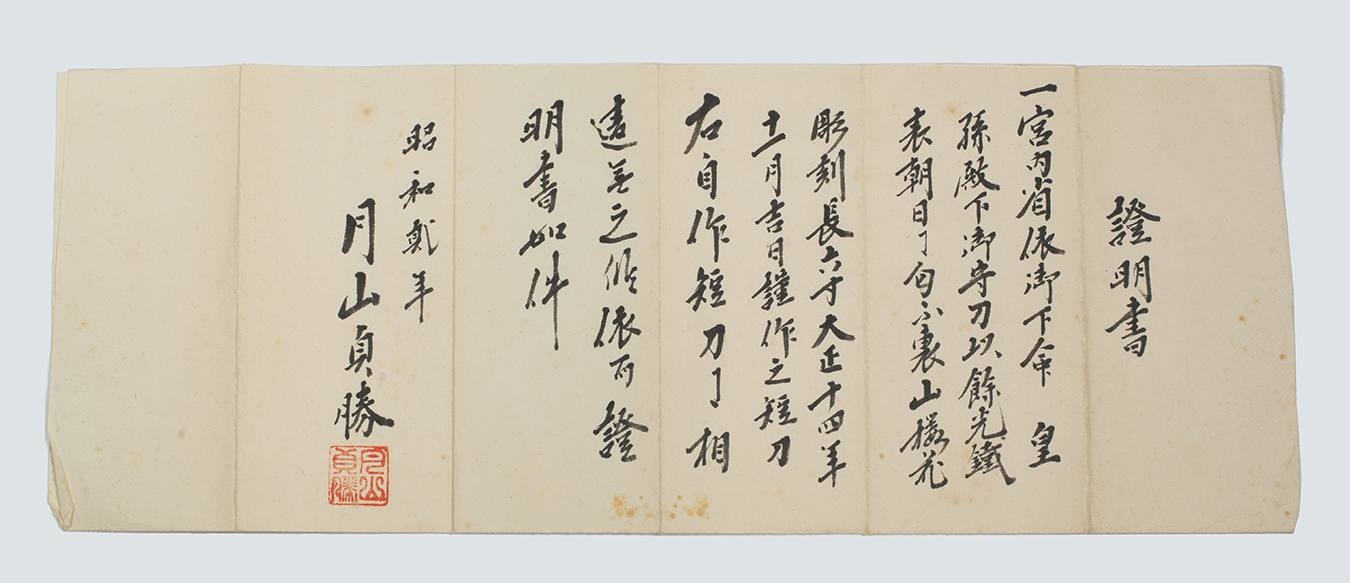 證明書
一宮内省依御下命　皇
孫殿下御守刀以餘光鐵
表朝日ニ匂ふ裏山櫻花
彫刻長六寸大正十四年
十一月吉日謹作之短刀
右自作短刀ニ相
違無之候依而證
明書如件
昭和貳年
月山貞勝
月山貞勝